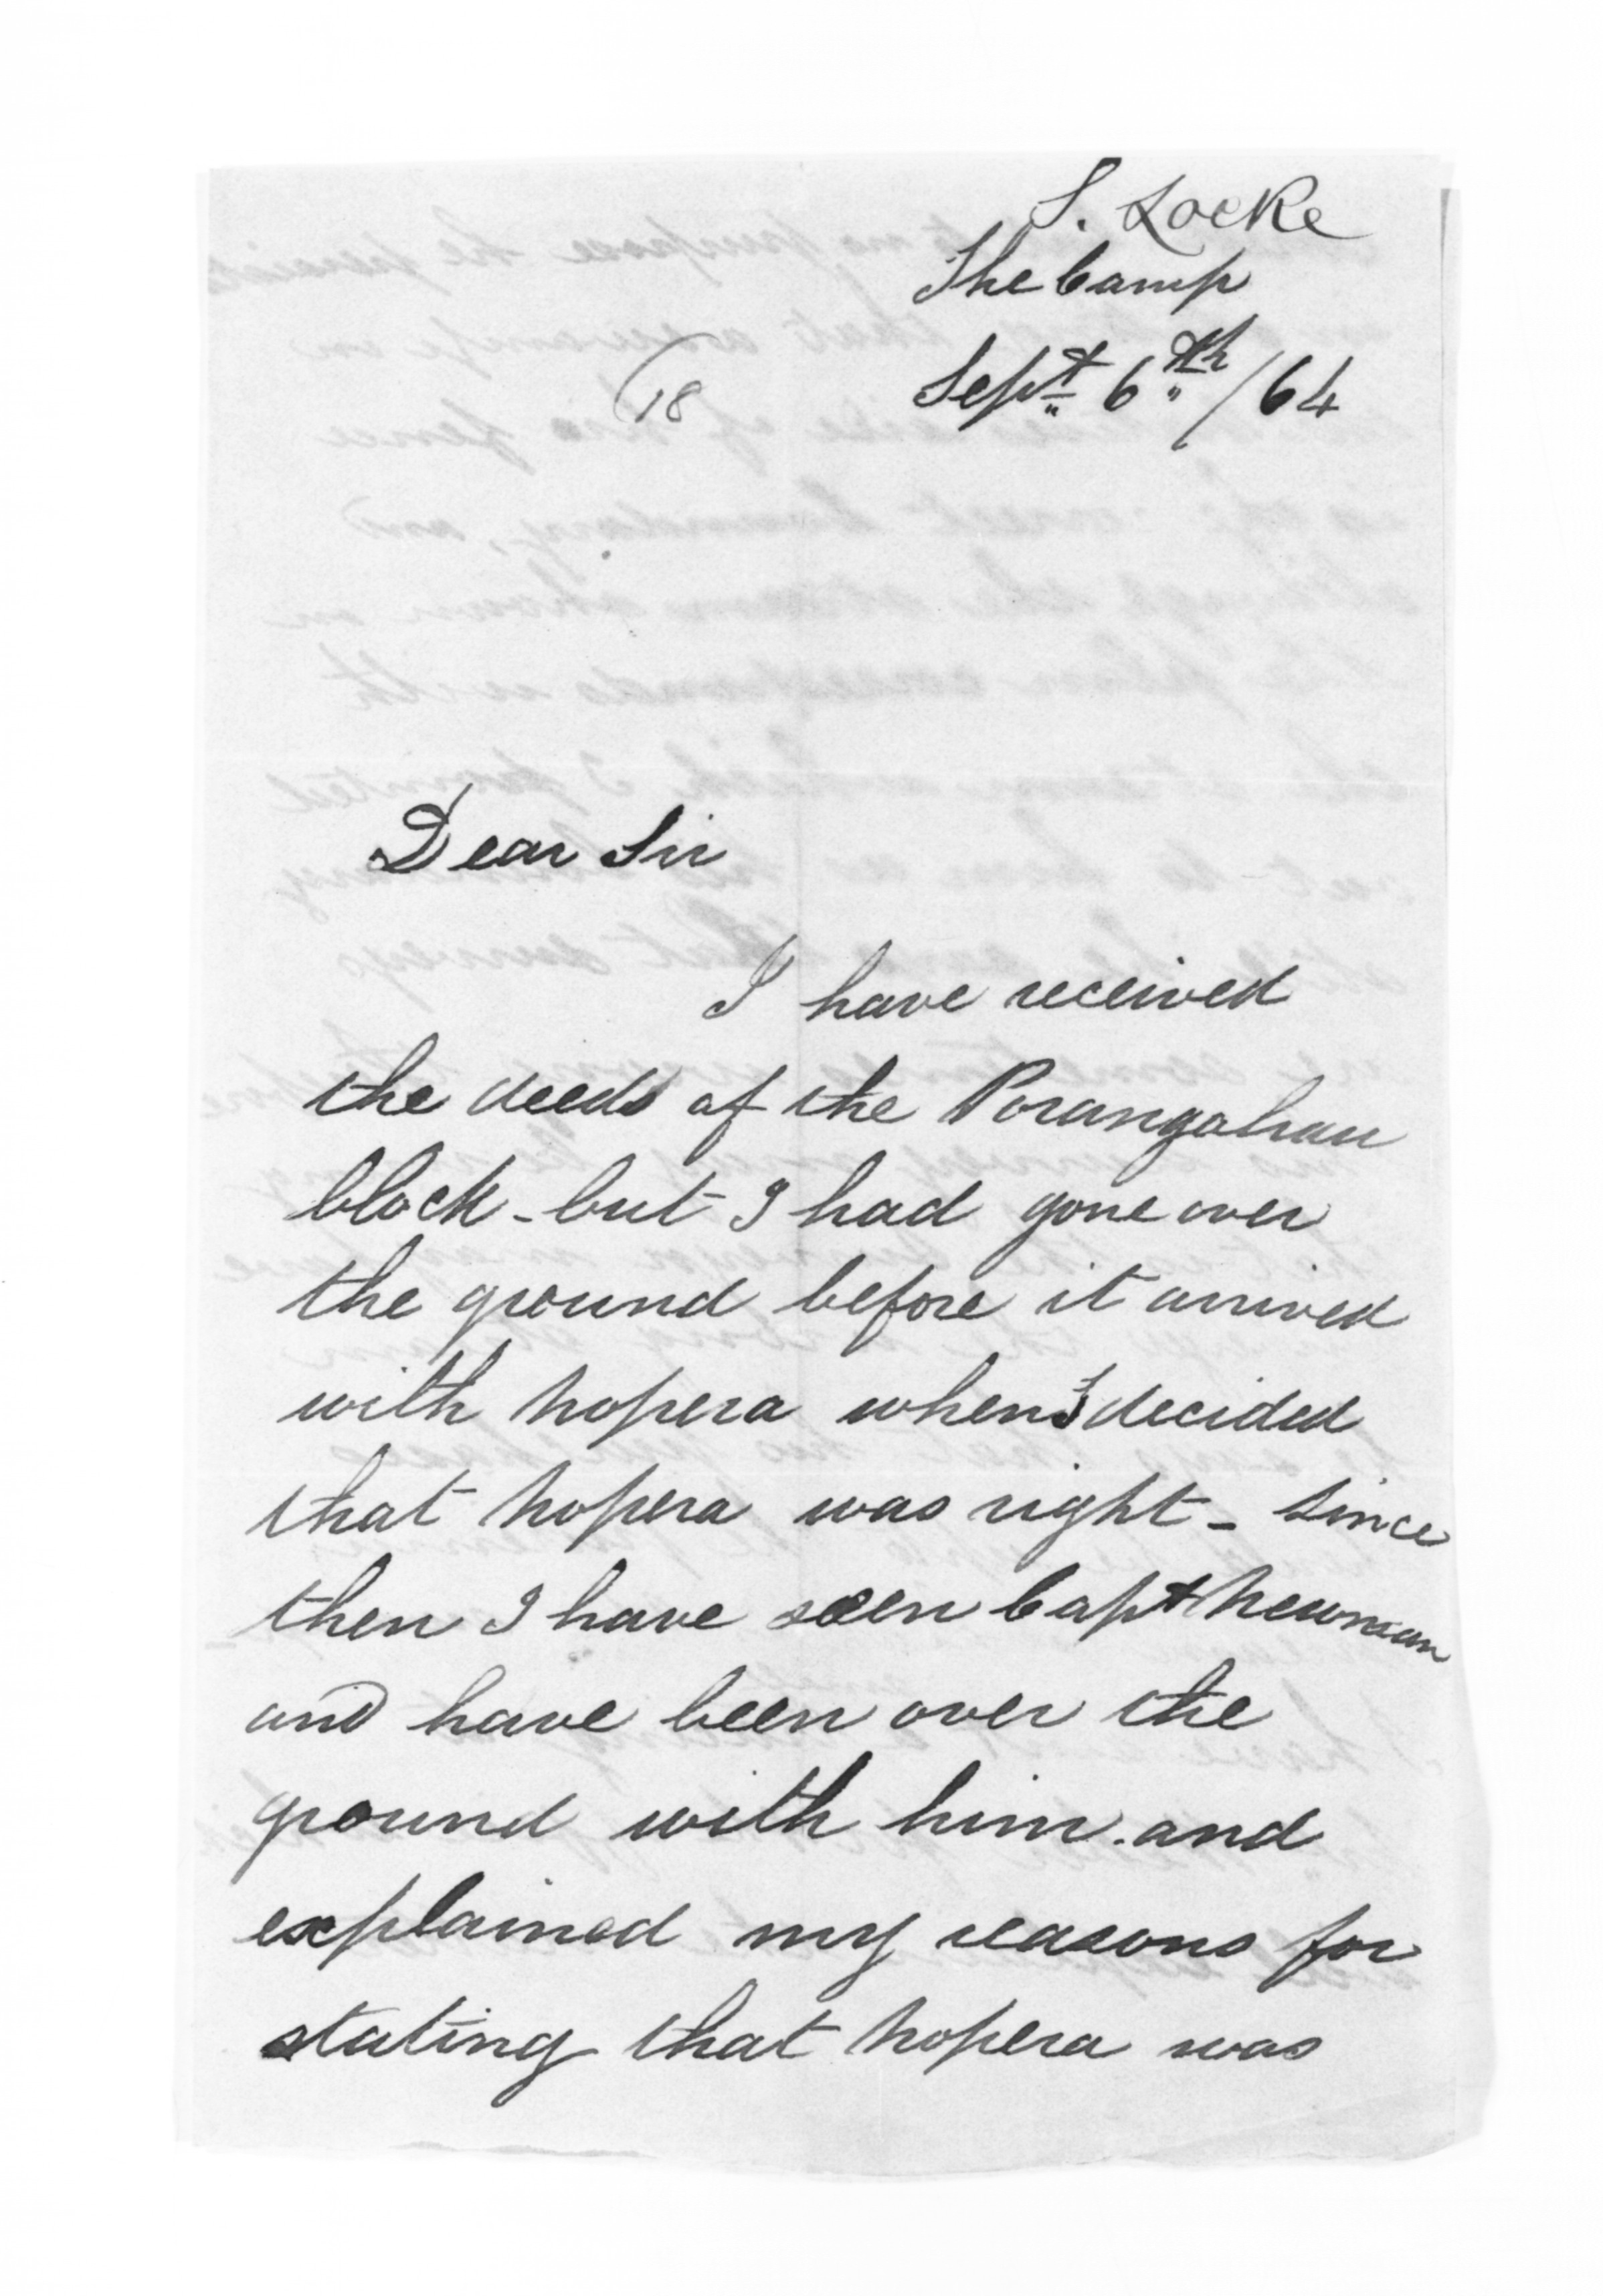 S. Locke
The Camp
Sept 6th/64
(18
Dear Sir
I have received
the deeds of the Porangahau
block - but I had gone over
the ground before it arrived
with hopera when I decided
that hopera was right - since
then I have seen Capt Newman
and have been over the
ground with him. and
explained my reasons for
stating that hopera was